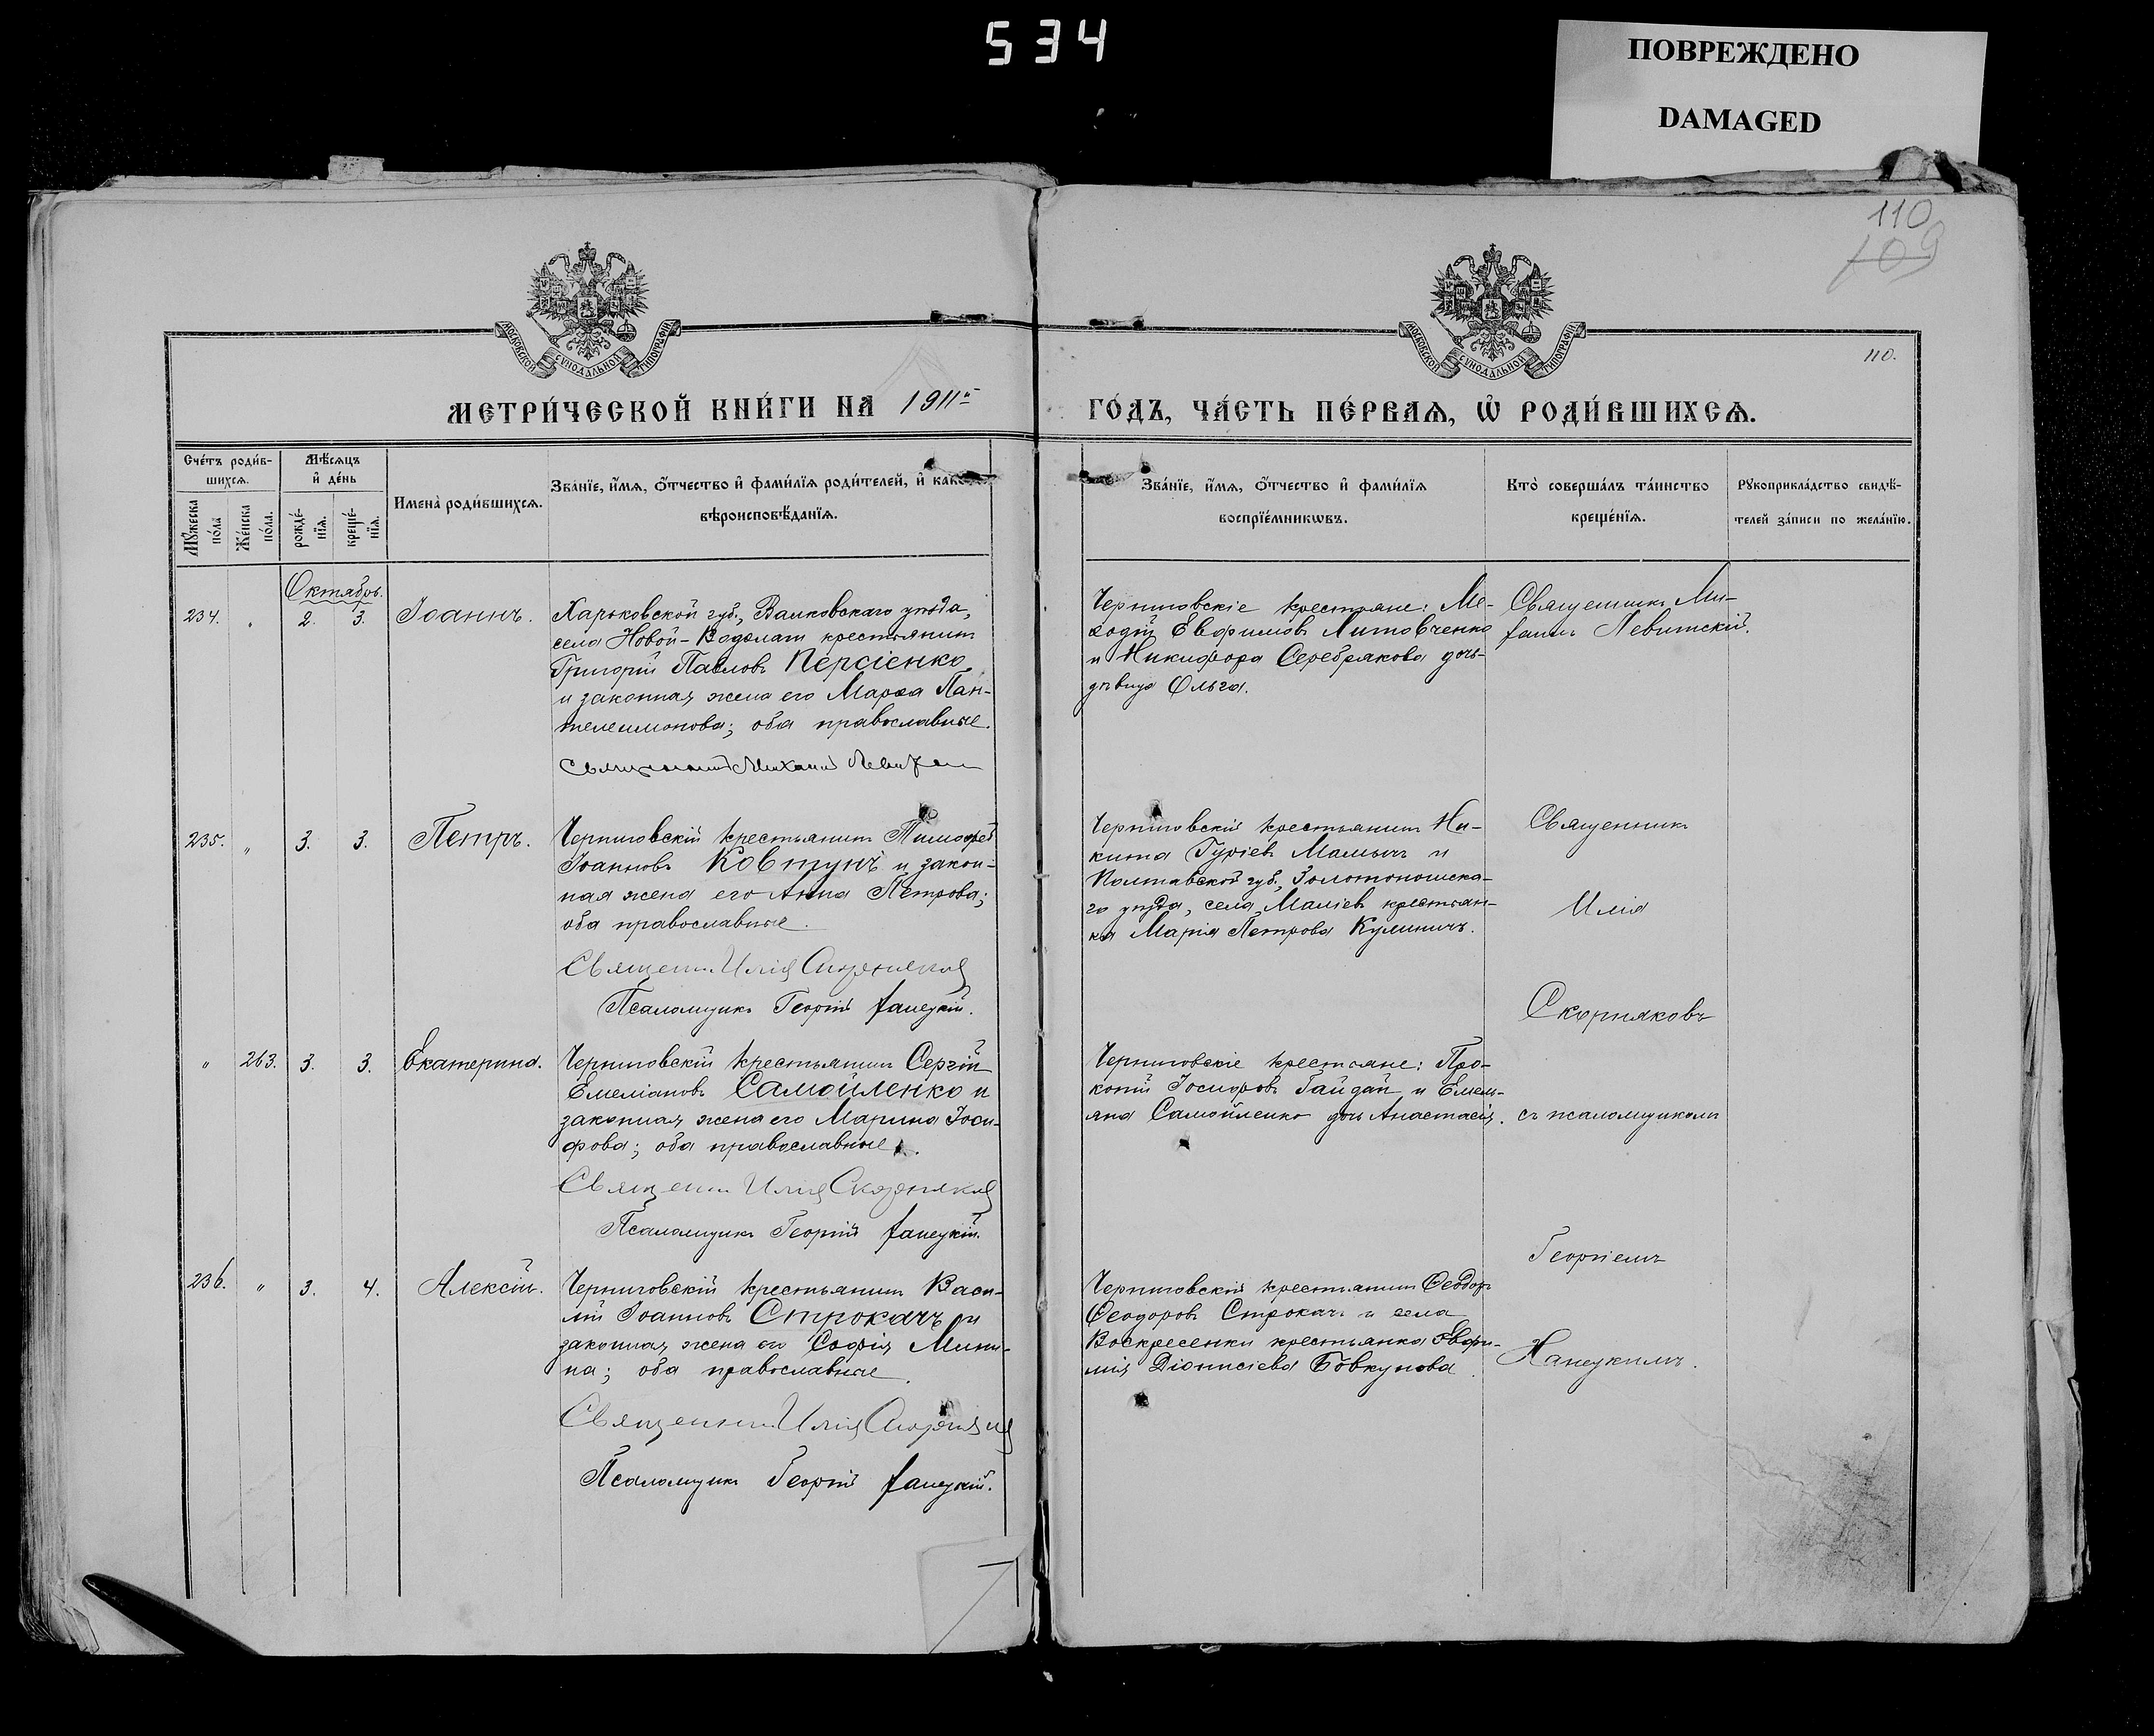 534
ПОВРЕЖДЕНО
DAMAGED
110
109
110.
МОСКОВСКОЙ СѴНОДАЛЬНОЙ ТИПОГРАФІИ
МОСКОВСКОЙ СѴНОДАЛЬНОЙ ТИПОГРАФІИ
МЕТРИ́ЧЕСКОЙ КНИ́ГИ НА 1911й
ГО́ДЪ, ЧА́СТЬ ПЕ́РВАѦ, Ѡ҆ РОДИ́ВШИХСѦ.
Сче́тъ роди́в-
шихсѧ.
Мꙋ́жеска по́ла
Же́нска по́ла.
Мѣ́сѧцъ
и҆ де́нь
рожде́-
нїѧ.
креще́-
нїѧ.
Имена̀ роди́вшихсѧ.
Зва́нїе, и҆́мѧ, ѻ҆́тчество и҆ фами́лїѧ роди́телей, и҆ како
вѣроисповѣ́данїѧ.
Зва́нїе, и҆́мѧ, ѻ҆́тчество и҆ фами́лїѧ
воспрїе́мникѡвъ.
Кто̀ соверша́лъ та́инство
креще́нїѧ.
Рꙋкоприкла́дство свидѣ́-
телей за́писи по жела́нїю.
Октябрь.
234. 2. 3. Іоаннъ.
Харьковской губ., Валковскаго уѣзда,
села Новой-Водолаги крестьянинъ
Григорій Павловъ Персіенко
и законная жена его Марѳа Пан-
телеимонова; оба православные.
Священникъ Михаилъ Левитскій
Черниговскіе крестьяне: Ме-
ѳодій Евфимовъ Литовченко
и Никифора Серебрякова дочь-
дѣвица Ольга.
Священникъ Ми-
хаилъ Левитскій.
235. " 3. 3. Петръ.
Черниговскій крестьянинъ Тимофей
Іоанновъ Ковтунъ и закон-
ная жена его Анна Петрова;
оба православные.
Священ. Илія Скорняковъ
Псаломщикъ Георгій Ханецкій.
Черниговскій крестьянинъ Ни-
кита Гуріевъ Малычъ и
Полтавской губ., Золотоношска-
го уѣзда, села Маліевъ крестьян-
ка Марія Петрова Кулиничъ.
Священникъ
Илія
Скорняковъ
" 263. 3. 3. Екатерина.
Черниговскій крестьянинъ Сергій
Емеліановъ Самойленко и
законная жена его Марина Іоси-
фова; оба православные.
Священ. Илія Скорняковъ
Псаломщикъ Георгій Ханецкій.
Черниговскіе крестьяне: Про-
копій Іосифовъ Гайдай и Емель-
яна Самойленко дочь Анастасія.
съ псаломщикомъ
Георгіемъ
Ханецкимъ.
236. " 3. 4. Алексій.
Черниговскій крестьянинъ Васи-
лій Іоанновъ Строкачъ и
законная жена его Софія Мини-
на; оба православные.
Священникъ Илія Скорняковъ
Псаломщикъ Георгій Ханецкій.
Черниговскій крестьянинъ Ѳеодоръ
Ѳеодоровъ Строкачъ и села
Воскресенки крестьянка Евфи-
мія Діонисіева Бовкунова.